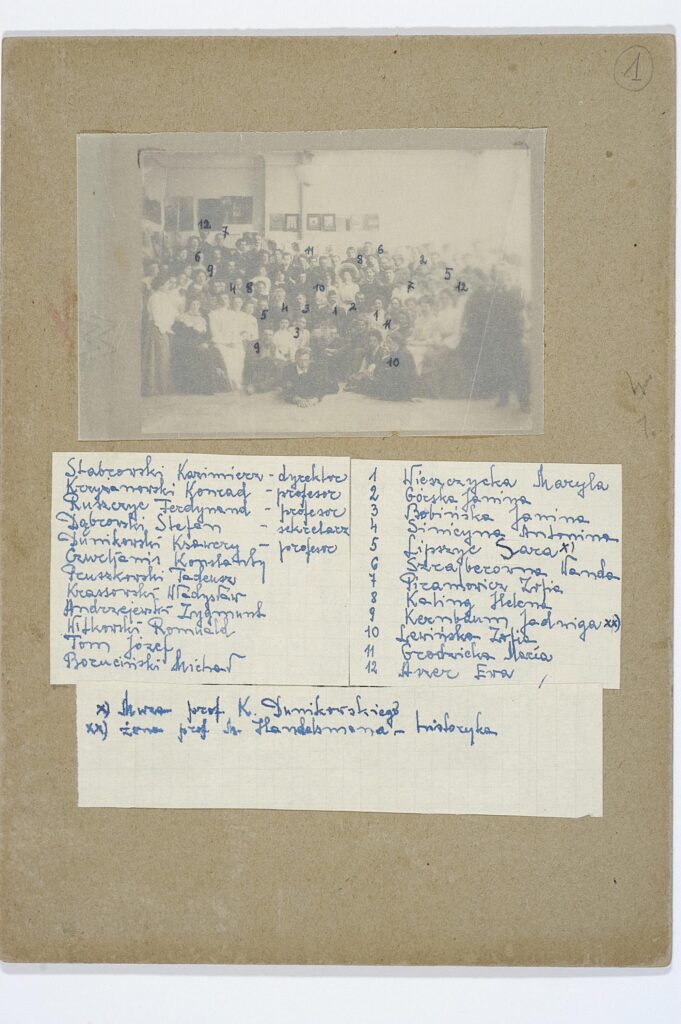 1
12
7
11
6
6
8
2
9
5
4
8
10
7
12
5
4
3
1
2
1
3
11
9
10
W
1.
Stabrowski Kazimierz - dyrektor
Krzyżanowski Konrad - profesor
Ruszczyc Ferdynand - profesor
Dąbrowski Stefan - sekretarz
Dunikowski Ksawery - profesor
Konstanty
Pruszkowski Tadeusz
Krassowski Władysław
Andrzejewski Zygmunt
Witkowski Romuald
Tom Józef
Boruciński Michał
1 Wieszczycka Maryla
2 Górska Janina
3 Bobińska Janina
4 Simicyna Antonina
5 Lipszyc Sara x)
6 Wanda
7 Piramowicz Zofia
8 Kaling Helena
9 Kernbaum Jadwiga xx)
10 Lewińska Zofia
11 Grodzicka Maria
12 Ewa
x) Muza prof. K. Dunikowskiego
xx) żona prof M. Handelsmana - historyka